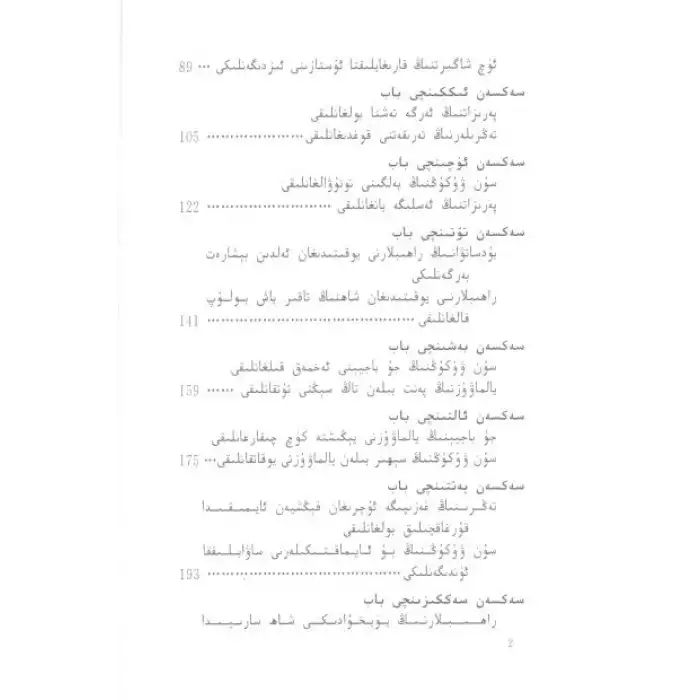 ئۈچ شاگىرتنىڭ قارىغايلىقتا ئۇستازىنى ئىزدىگەنلىكى ... 89
سەكسەن ئىككىنچى باب
پەرىزاتنىڭ ئەرگە تەشنا بولغانلىقى
تەڭرىلەرنىڭ تەرىقەتنى قوغدىغانلىقى ..................... 105
سەكسەن ئۈچىنچى باب
سۇن ۋۇكۇڭنىڭ يەلگىنى تونۇۋالغانلىقى
پەرىزاتنىڭ ئەسلىگە يانغانلىقى ........................... 122
سەكسەن تۆتىنچى باب
بۇدساتۋانىڭ راھىبلارنى يوقىتىدىغان ئەلدىن بېشارەت
بەرگەنلىكى
راھىبلارنى يوقىتىدىغان شاھنىڭ تاقىر باش بولۇپ
قالغانلىقى ....................................... 141
سەكسەن بەشىنچى باب
سۇن ۋۇكۇڭنىڭ جۇ باجيېنى ئەخمەق قىلغانلىقى
يالماۋۇزنىڭ پەنت بىلەن تاڭ سېڭنى تۇتقانلىقى ...... 159
سەكسەن ئالتىنچى باب
جۇ باجيېنىڭ يالماۋۇزنى يېڭىشتە كۈچ چىقارغانلىقى
سۇن ۋۇكۇڭنىڭ سېھىر بىلەن يالماۋۇزنى يوقاتقانلىقى... 175
سەكسەن يەتتىنچى باب
تەڭرىنىڭ غەزىپىگە ئۇچرىغان فېڭشيەن ئايمىقىدا
قۇرغاقچىلىق بولغانلىقى
سۇن ۋۇكۇڭنىڭ بۇ ئايماقتىكىلەرنى ساۋابلىققا
ئۈندىگەنلىكى ....................................... 193
سەكسەن سەككىزىنچى باب
راھىبلارنىڭ يۈيخۇادىكى شاھ سارىيىدا
2